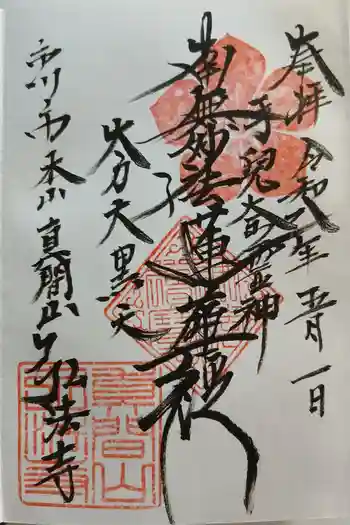 奉拝 令和元年 五月一日
手児奈霊神
南無妙法蓮華経
大黒天
市川市本山真間山弘法寺